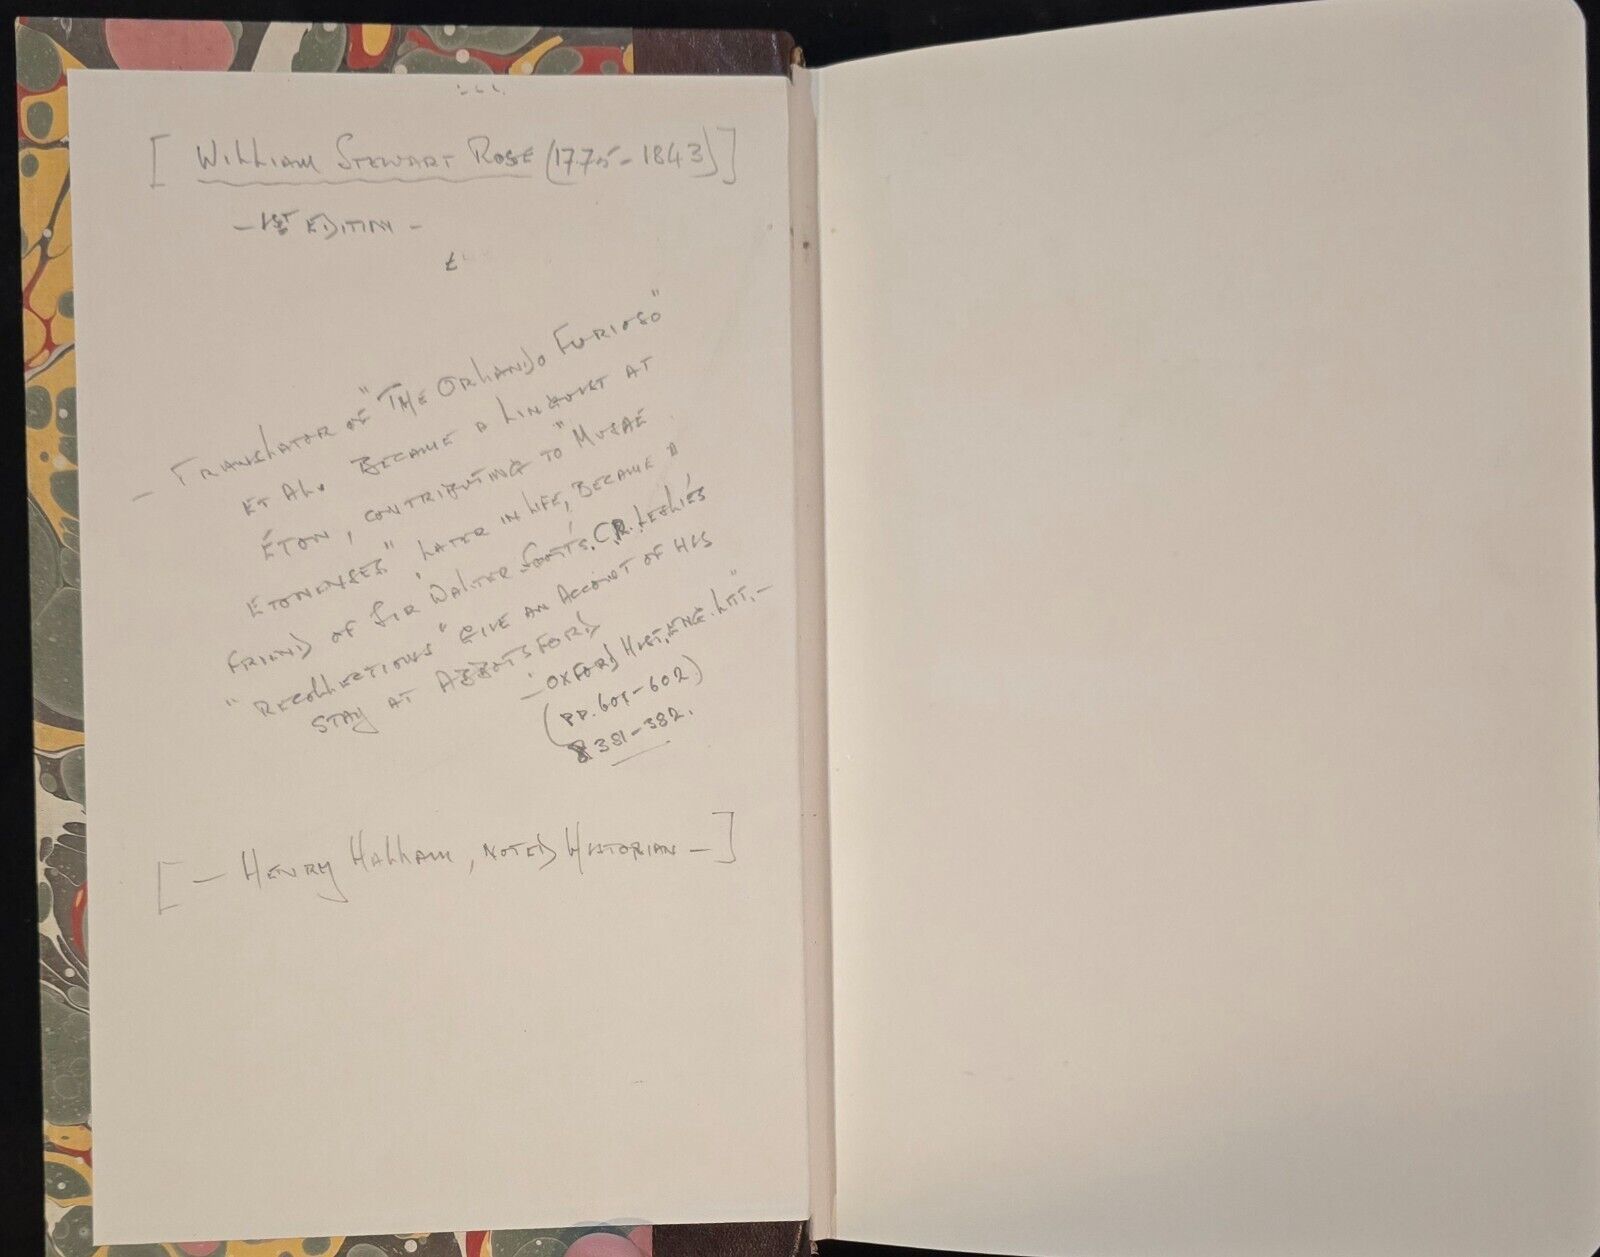 [ WILLIAM STEWART ROSE (1775-1843) ]
- 1ST EDITION -
- TRANSLATOR OF "THE ORLANDO FURIOSO"
ET AL. BECAME A LINGUIST AT
ETON, CONTRIBUTING TO "MUSAE
ETONENSES". LATER IN LIFE, BECAME A
FRIEND OF SIR WALTER SCOTT'S. C.R. LESLIE'S
"RECOLLECTIONS" GIVE AN ACCOUNT OF HIS
STAY AT ABBOTSFORD
- "OXFORD HIST. ENG. LIT." -
(PP. 601-602)
& 381-382.
[ - HENRY HALLAM, NOTED HISTORIAN - ]